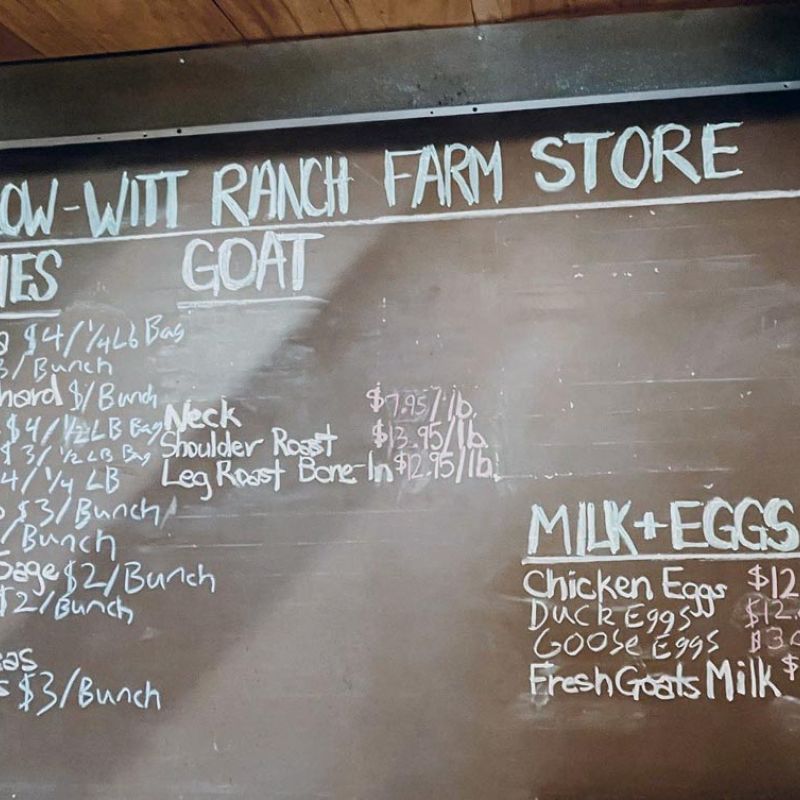 OW-WITT RANCH FARM STORE
IES
$4/¼Lb Bag
3/Bunch
hard $/Bunch
$4/½LB Bag
$3/½LB Bag
4/¼ LB
$3/Bunch
/Bunch
Sage $2/Bunch
$2/Bunch
eas
s $3/Bunch
GOAT
Neck $7.95/lb.
Shoulder Roast $13.95/lb.
Leg Roast Bone-In $12.95/lb.
MILK+EGGS
Chicken Eggs $12
Duck Eggs $12.
Goose Eggs $3
Fresh Goats Milk $